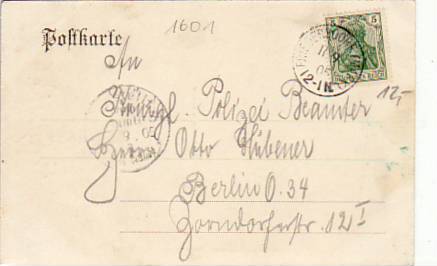 1601
Postkarte
5
12-1N
12,-
An
Königl. Polizei Beamter
Herrn Otto Hübener
Berlin O. 34
Zorndorferstr. 12 I